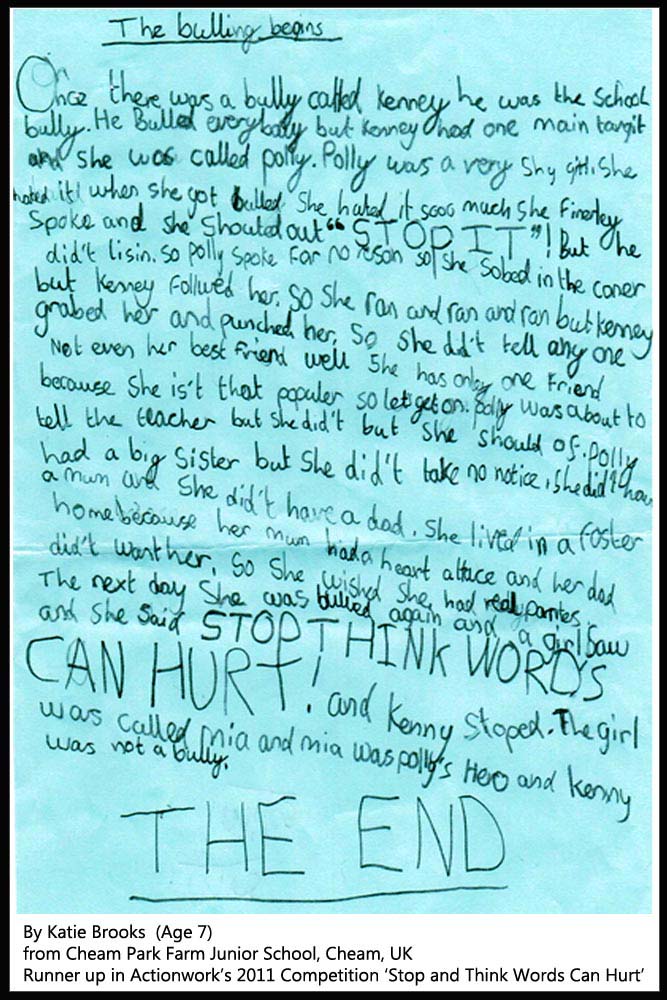 The bulling begins
Once there was a bully called kenney he was the School
bully. He Bulled everybody but Kenney had one main targit
and She was called polly. Polly was a very Shy girl. She
hated it! when she got bulled She hated it sooo much She Finerley
Spoke and she Shouted out "STOP IT"! But he
did't lisin. So Polly Spoke For no reson so! She Sobed in the coner
but Kenney Follwed her. So She ran and ran and ran but kenney
grabed her and punched her. So She did't tell any one
Not even her best Friend well She has only one Friend
because She is't that populer so let's get on. polly was about to
tell the teacher but she did't but She should of. polly
had a big Sister but She did't take no notice, she did't have
a mum and She did't have a dad. She lived in a foster
home because her mum had a heart attace and her dad
did't want her. So She wished She had real parntes.
The next day She was bullied again and a girl Saw
and She Said STOP THINK WORDS
CAN HURT! and Kenny Stoped. The girl
was called mia and mia was polly's Hero and Kenny
was not a bully.
THE END
By Katie Brooks (Age 7)
from Cheam Park Farm Junior School, Cheam, UK
Runner up in Actionwork's 2011 Competition 'Stop and Think Words Can Hurt'